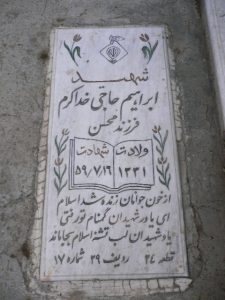 شهید
ابراهیم حاجی خداکرم
فرزند محسن
ولادت شهادت
۱۳۳۱ ۵۹/۷/۱۶
از خون جوانان زنده شد اسلام
ای یاور شهیدان گمنام تو رفتی
یاد شهیدان لب تشنه اسلام بجا ماند
قطعه ۲۴ ردیف ۲۹ شماره ۱۷